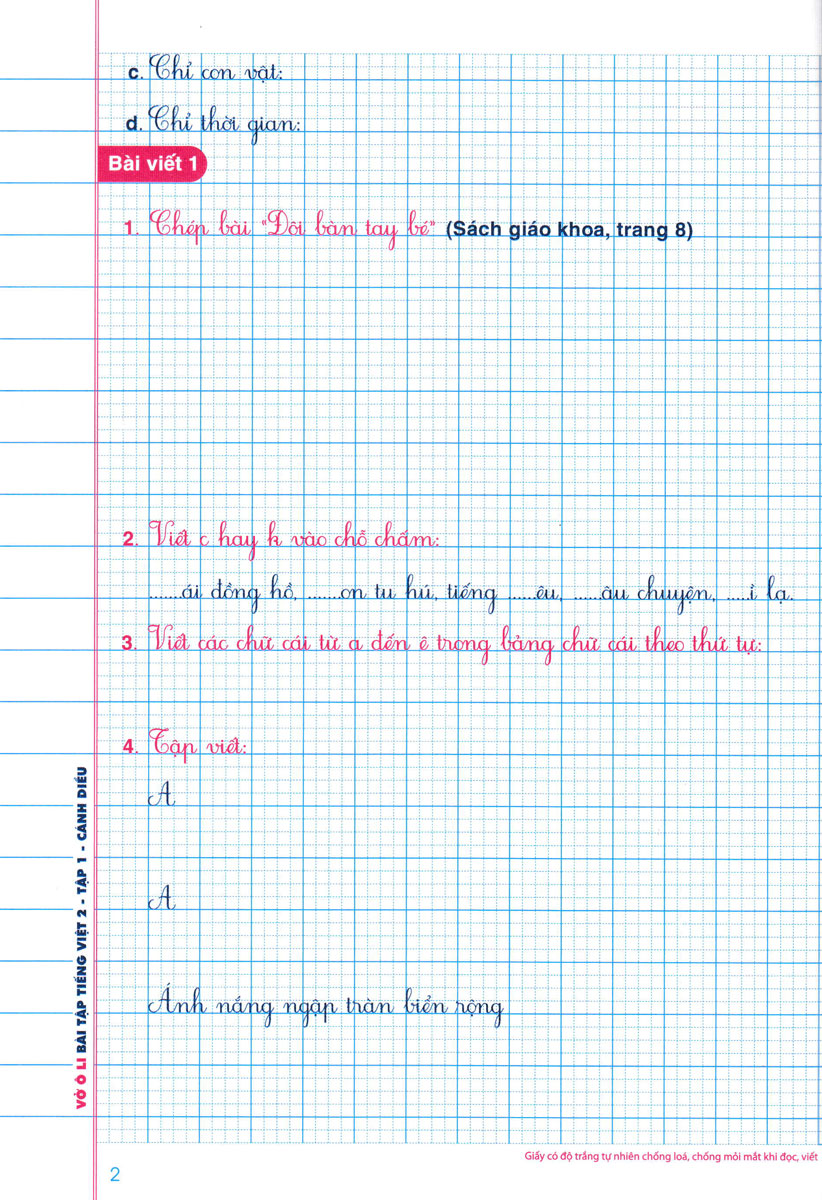 c. Chỉ con vật:
d. Chỉ thời gian:
Bài viết 1
1. Chép bài "Đôi bàn tay bé" (Sách giáo khoa, trang 8)
2. Viết c hay k vào chỗ chấm:
......ái đồng hồ, ......on tu hú, tiếng .....êu, .....âu chuyện, .....ì lạ.
3. Viết các chữ cái từ a đến ê trong bảng chữ cái theo thứ tự:
4. Tập viết:
A
A
Ánh nắng ngập tràn biển rộng
VỞ Ô LI BÀI TẬP TIẾNG VIỆT 2 - TẬP 1 - CÁNH DIỀU
Giấy có độ trắng tự nhiên chống loá, chống mỏi mắt khi đọc, viết
2